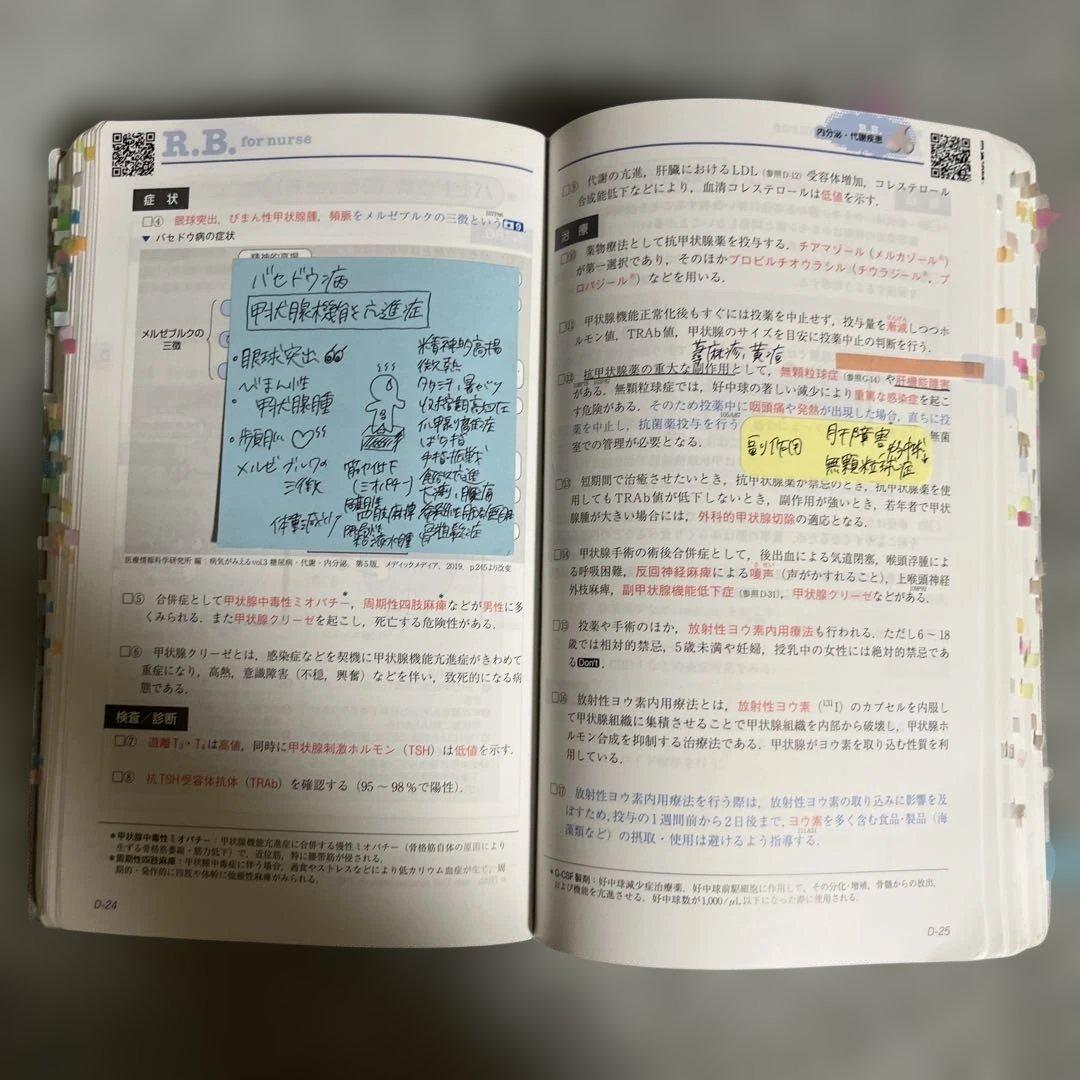 R.B. for nurse
症状
□④ 眼球突出,びまん性甲状腺腫,頻脈をメルゼブルクの三徴という
107P86
9
▼ バセドウ病の症状
精神的高揚
メルゼブルクの
三徴
バセドウ病
甲状腺機能亢進症
・眼球突出
びまん性
・甲状腺腫
・頻脈
メルゼブルクの
三徴
体重減少
精神的高揚
微熱
多汗
収縮期高血圧
ばち指
手指振戦
食欲亢進
筋力低下
(ミオパチー)
周期性
四肢麻痺
粘液水腫
医療情報科学研究所 編:病気がみえるvol.3 糖尿病・代謝・内分泌,第5版,メディックメディア,2019,p.245より改変
□⑤ 合併症として甲状腺中毒性ミオパチー*,周期性四肢麻痺*などが男性に多
くみられる.また甲状腺クリーゼを起こし,死亡する危険性がある.
□⑥ 甲状腺クリーゼとは,感染症などを契機に甲状腺機能亢進症がきわめて
重症になり,高熱,意識障害(不穏,興奮)などを伴い,致死的になる病
態である.
検査/診断
□⑦ 遊離T₃・T₄は高値,同時に甲状腺刺激ホルモン(TSH)は低値を示す.
□⑧ 抗TSH受容体抗体(TRAb)を確認する(95~98%で陽性).
*甲状腺中毒性ミオパチー:甲状腺機能亢進症に合併する慢性ミオパチー(骨格筋自体の原因により
生ずる骨格筋萎縮・筋力低下)で,近位筋,特に腰帯筋が侵される.
*周期性四肢麻痺:甲状腺中毒症に伴う場合,過食やストレスなどにより低カリウム血症が生じ,周
期的・発作的に四肢や体幹に弛緩性麻痺がみられる.
D-24
R.B.
内分泌・代謝疾患
□⑨ 代謝の亢進,肝臓におけるLDL(参照D-12)受容体増加,コレステロール
合成能低下などにより,血清コレステロールは低値を示す.
治療
□⑩ 薬物療法として抗甲状腺薬を投与する.チアマゾール(メルカゾール®)
が第一選択であり,そのほかプロピルチオウラシル(チウラジール®,プ
ロパジール®)などを用いる.
□⑪ 甲状腺機能正常化後もすぐには投薬を中止せず,投与量を漸減しつつホ
ルモン値,TRAb値,甲状腺のサイズを目安に投薬中止の判断を行う.
蕁麻疹,黄疸
□⑫ 抗甲状腺薬の重大な副作用として,無顆粒球症(参照G-14)や肝機能障害
がある.無顆粒球症では,好中球の著しい減少により重篤な感染症を起こ
す危険がある.そのため投薬中に咽頭痛や発熱が出現した場合,直ちに投
薬を中止し,抗菌薬投与を行う
無菌
室での管理が必要となる.
副作用 肝障害
無顆粒球症
□⑬ 短期間で治癒させたいとき,抗甲状腺薬が禁忌のとき,抗甲状腺薬を使
用してもTRAb値が低下しないとき,副作用が強いとき,若年者で甲状
腺腫が大きい場合には,外科的甲状腺切除の適応となる.
□⑭ 甲状腺手術の術後合併症として,後出血による気道閉塞,喉頭浮腫によ
る呼吸困難,反回神経麻痺による嗄声(声がかすれること),上喉頭神経
外枝麻痺,副甲状腺機能低下症(参照D-31),甲状腺クリーゼなどがある.
□⑮ 投薬や手術のほか,放射性ヨウ素内用療法も行われる.ただし6~18
歳では相対的禁忌,5歳未満や妊婦,授乳中の女性には絶対的禁忌であ
る Don't.
□⑯ 放射性ヨウ素内用療法とは,放射性ヨウ素(¹³¹I)のカプセルを内服し
て甲状腺組織に集積させることで甲状腺組織を内部から破壊し,甲状腺ホ
ルモン合成を抑制する治療法である.甲状腺がヨウ素を取り込む性質を利
用している.
□⑰ 放射性ヨウ素内用療法を行う際は,放射性ヨウ素の取り込みに影響を及
ぼすため,投与の1週間前から2日後まで,ヨウ素を多く含む食品・製品(海
藻類など)の摂取・使用は避けるよう指導する.
*G-CSF製剤:好中球減少症治療薬.好中球前駆細胞に作用して,その分化・増殖,骨髄からの放出,
および機能を亢進させる.好中球数が1,000/μL以下になった際に使用される.
D-25